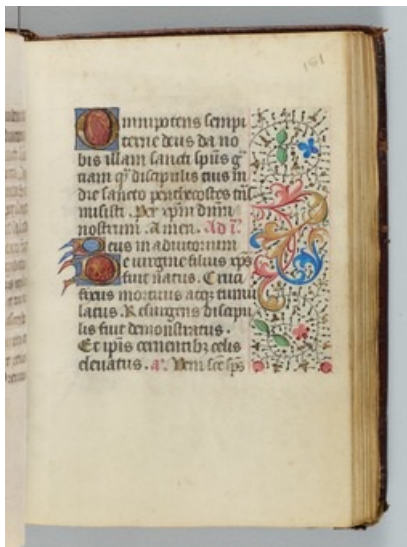 151
Omnipotens sempi
terne deus da no
bis illam sancti spūs g̃
tiam qʒ discipulis tuis in
die sancto penthecostes trās
misisti. Per xpm dnm
nostrum. Amen. Ad i͂.
Deus in adiutorium
De virgine filius xp̄s
fuit natus. Cruci
fixus mortuus atqʒ tumu
latus. Resurgens discipu
lis fuit demonstratus.
Et ip̄is cernentibʒ celis
elevatus. a͂. Veni sc̄e sp̄s